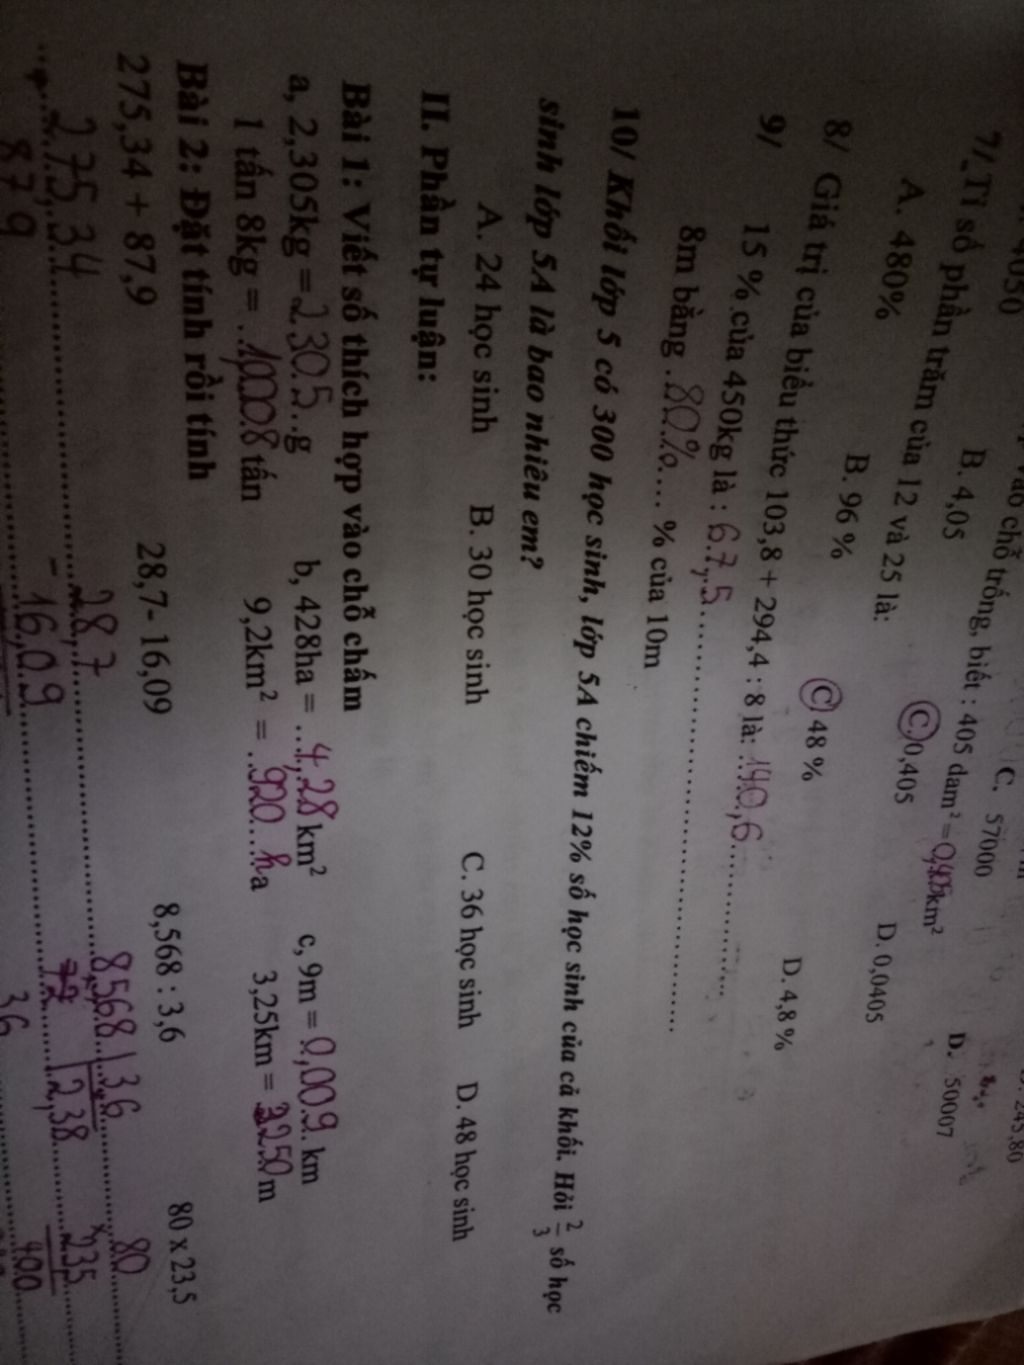 4050 B. 4,05 C. 57000 D. 50007
vào chỗ trống, biết : 405 dam² = 0,405km²
B. 4,05 C. 0,405 D. 0,0405
7/ Tỉ số phần trăm của 12 và 25 là:
A. 480% B. 96 % C. 48 % D. 4,8 %
8/ Giá trị của biểu thức 103,8 + 294,4 : 8 là: 140,6
9/ 15 % của 450kg là : 67,5
8m bằng 80% % của 10m
10/ Khối lớp 5 có 300 học sinh, lớp 5A chiếm 12% số học sinh của cả khối. Hỏi 2/3 số học
sinh lớp 5A là bao nhiêu em?
A. 24 học sinh B. 30 học sinh C. 36 học sinh D. 48 học sinh
II. Phần tự luận:
Bài 1: Viết số thích hợp vào chỗ chấm
a, 2,305kg = 2305 g b, 428ha = 4,28 km² c, 9m = 0,009 km
1 tấn 8kg = 1,008 tấn 9,2km² = 920 ha 3,25km = 3250 m
Bài 2: Đặt tính rồi tính
275,34 + 87,9 28,7- 16,09 8,568 : 3,6 80 x 23,5
275,34 28,7 8,568 3,6 80
87,9 - 16,09 72 2,38 x 235
36 400